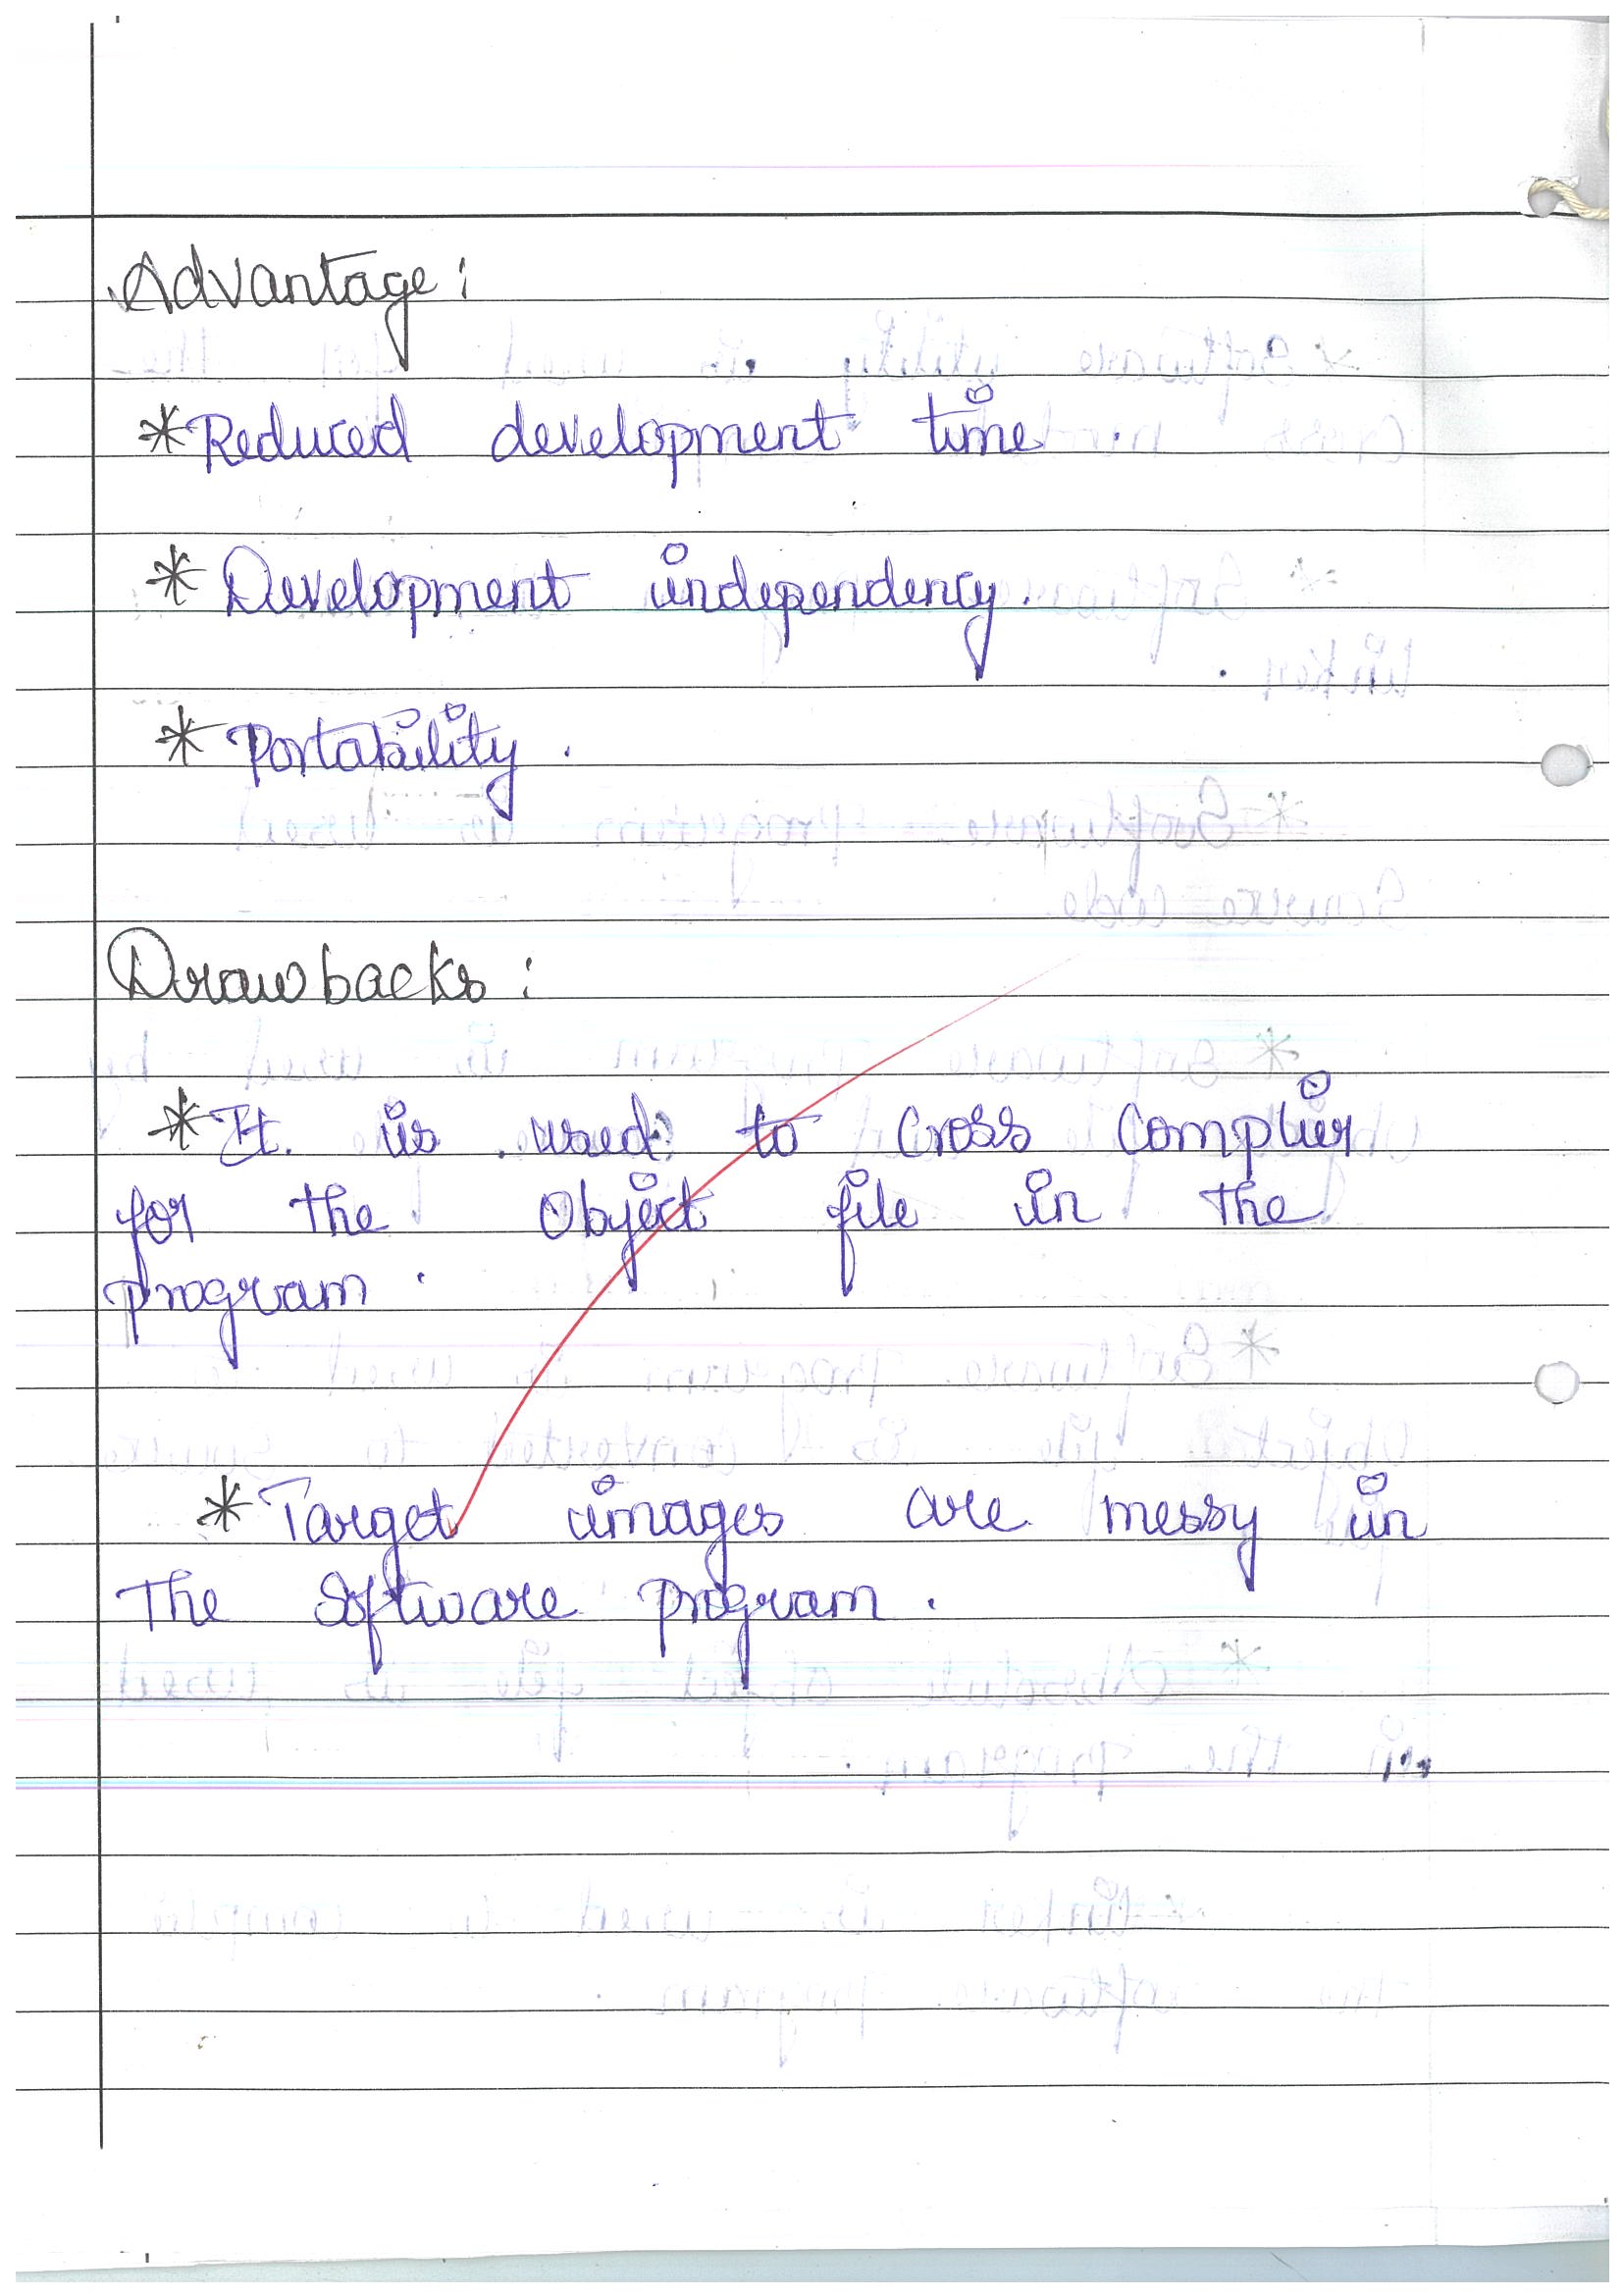 Advantage:
*Reduced development time
* Development independency.
* Portability.
Drawbacks:
*It is used to cross complier
for the Object file in the
program.
*Target images are messy in
The Software program.